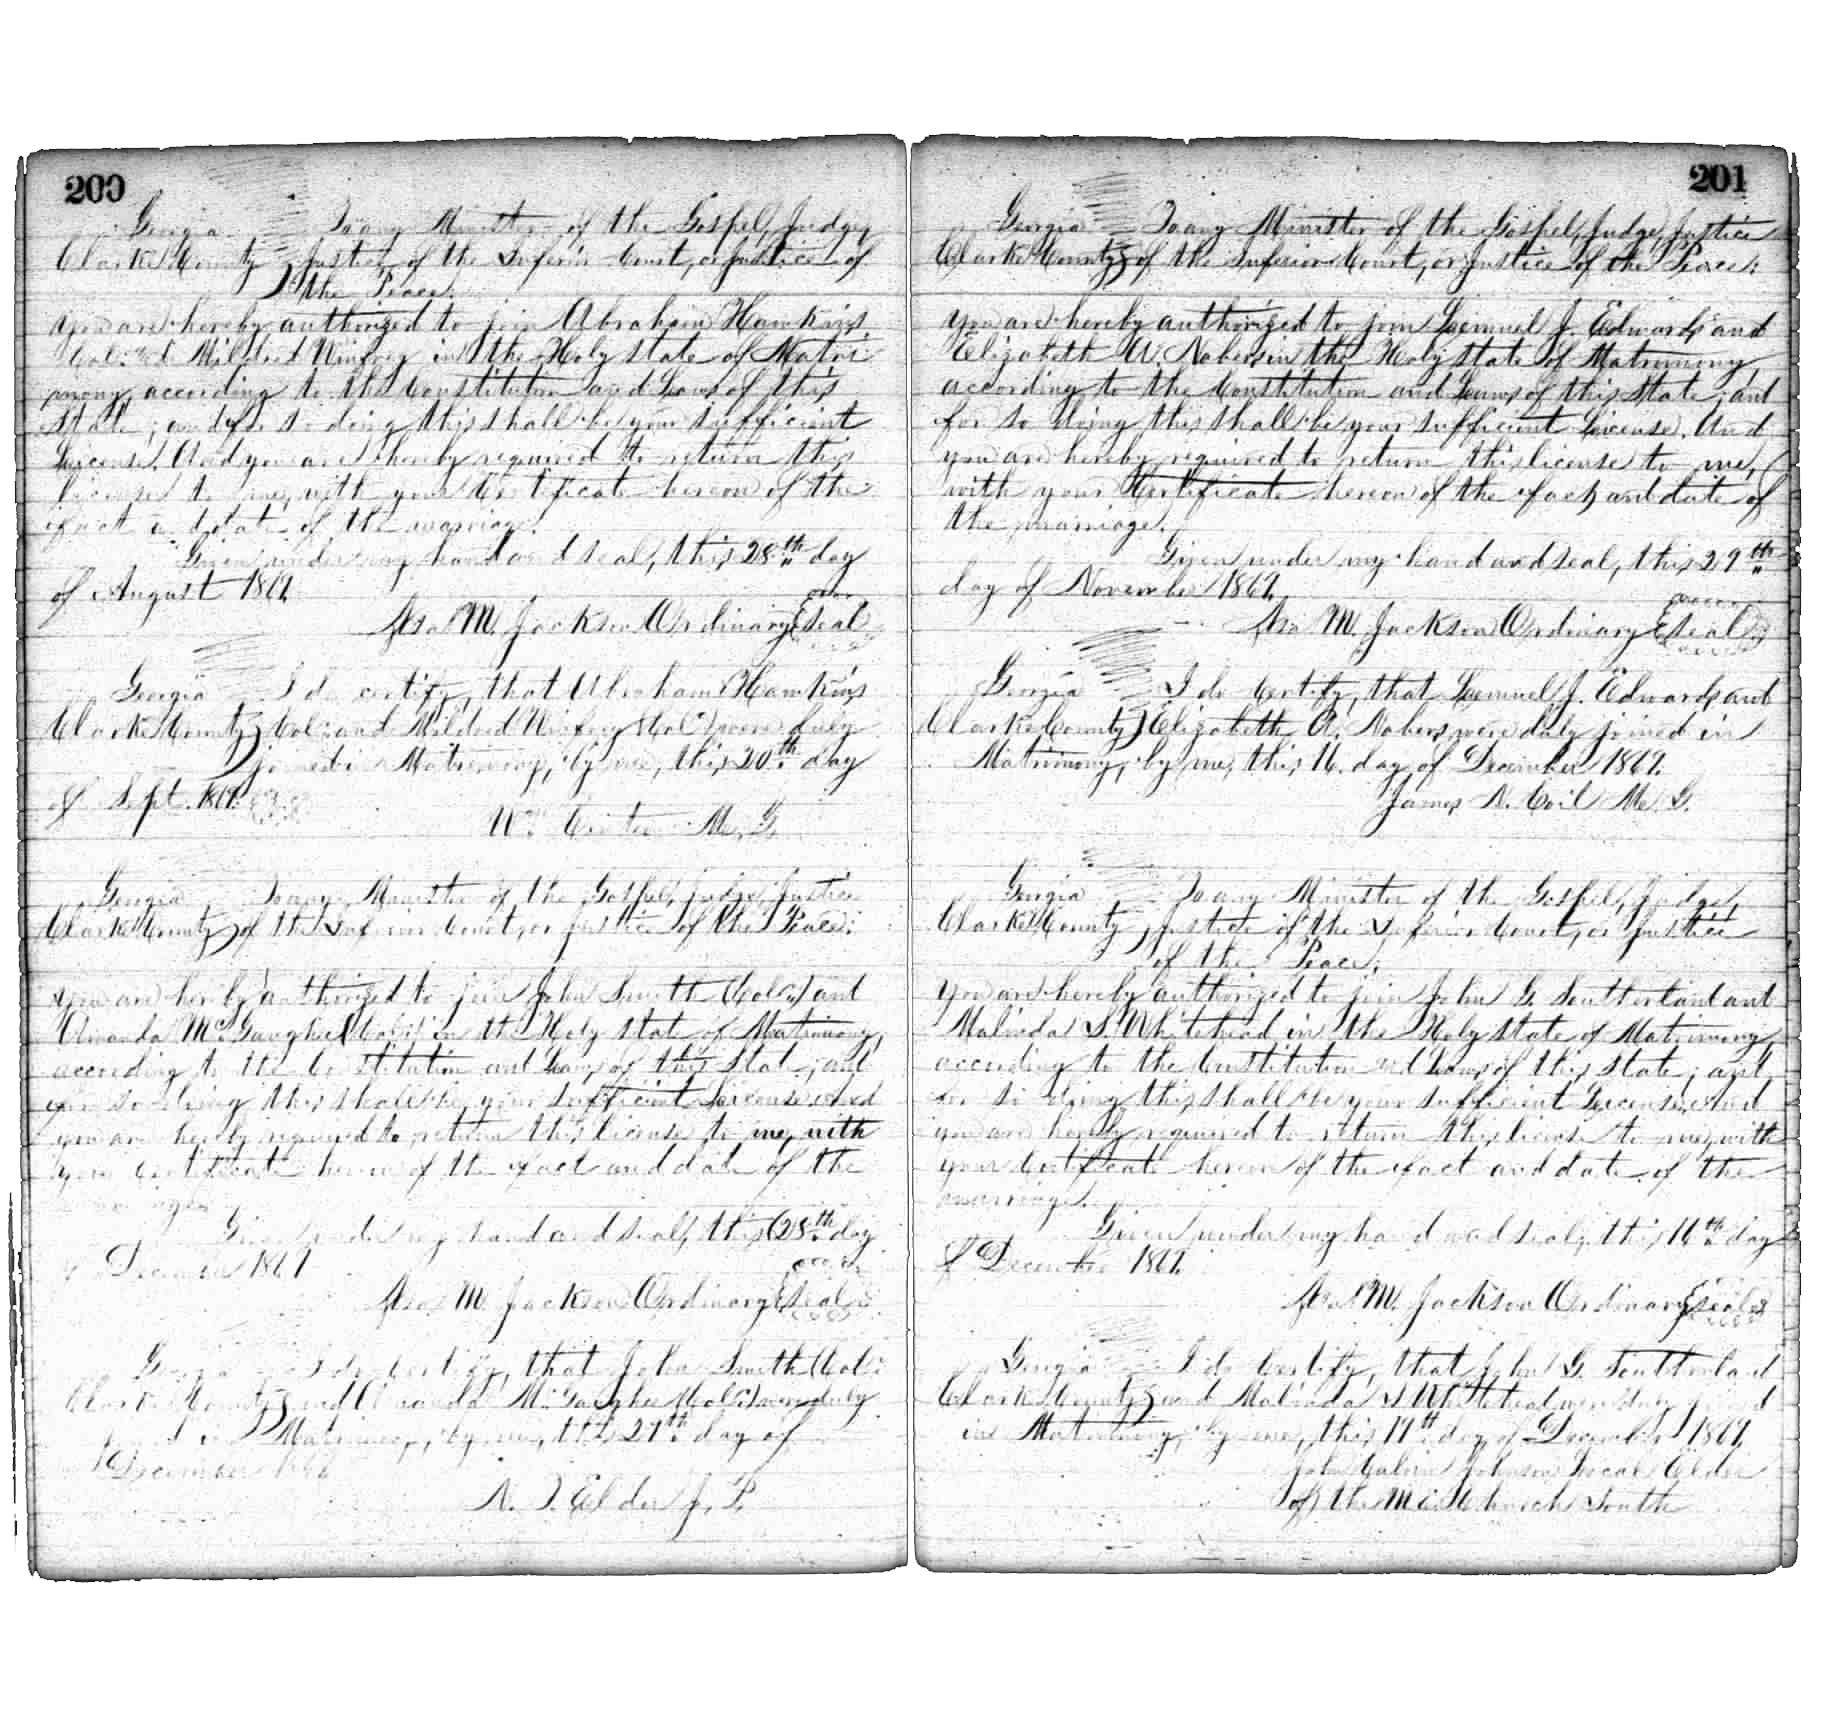 200
Georgia To any Minister of the Gospel, Judge,
Clarke County Justice of the Inferior Court, or Justice of
the Peace.
You are hereby authorized to join Abraham Hawkins
Col. & Mildred Winfrey in the Holy state of Matri
mony, according to the Constitution and Laws of this
State; and for so doing this shall be your sufficient
License. And you are hereby required to return this
license to me, with your Certificate hereon of the
fact & date of the marriage.
Given under my hand and seal, this 28th day
of August 1867.
Asa M. Jackson Ordinary Seal
Georgia I do certify, that Abraham Hawkins
Clarke County Col. and Mildred Winfrey (Col.) were duly
joined in Matrimony, by me, this 20th day
of Sept. 1867.
Wm M. G.
Georgia To any Minister of the Gospel, Judge, Justice
Clarke County of the Inferior Court, or Justice of the Peace;
You are hereby authorized to join John Smith (Col.) and
Amanda McGaughee (Col.) in the Holy state of Matrimony,
according to the Constitution and Laws of this State; and
for so doing this shall be your sufficient License. And
you are hereby required to return this license to me, with
your Certificate hereon of the fact and date of the
marriage
Given under my hand and seal, this 28th day
of December 1867
Asa M. Jackson Ordinary Seal
Georgia I do Certify, that John Smith Col.
Clarke County and Amanda McGaughee (Col.) were duly
joined in Matrimony, by me, this 29th day of
December
N. J. Elder J. P.
201
Georgia To any Minister of the Gospel, Judge, Justice
Clarke County of the Inferior Court, or Justice of the Peace:
You are hereby authorized to join Lemuel J. Edwards and
Elizabeth A. Nabers in the Holy state of Matrimony,
according to the Constitution and Laws of this State; and
for so doing this shall be your sufficient License. And
you are hereby required to return this license to me,
with your Certificate hereon of the fact and date of
the marriage.
Given under my hand and seal, this 29th
day of November 1867.
Asa M. Jackson Ordinary Seal
Georgia I do Certify, that Lemuel J. Edwards and
Clarke County Elizabeth A. Nabers were duly joined in
Matrimony, by me, this 16. day of December 1867.
James N. Coil M. G.
Georgia To any Minister of the Gospel, Judge,
Clarke County Justice of the Inferior Court, or Justice
of the Peace;
You are hereby authorized to join John G. Southerland and
Malinda S. Whitehead in the Holy state of Matrimony,
according to the Constitution and Laws of this State; and
for so doing this shall be your sufficient License; and
you are hereby required to return this license to me, with
your Certificate hereon of the fact and date of the
marriage.
Given under my hand and seal, this 16th day
of December 1867.
Asa M. Jackson Ordinary Seal
Georgia I do Certify, that John G. Southerland
Clarke County and Malinda S. Whitehead were duly joined
in Matrimony, by me, this 17th day of December 1867.
John Calvin Johnson Local Elder
of the M. E. Church South